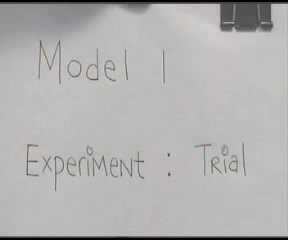 Model 1
Experiment : Trial